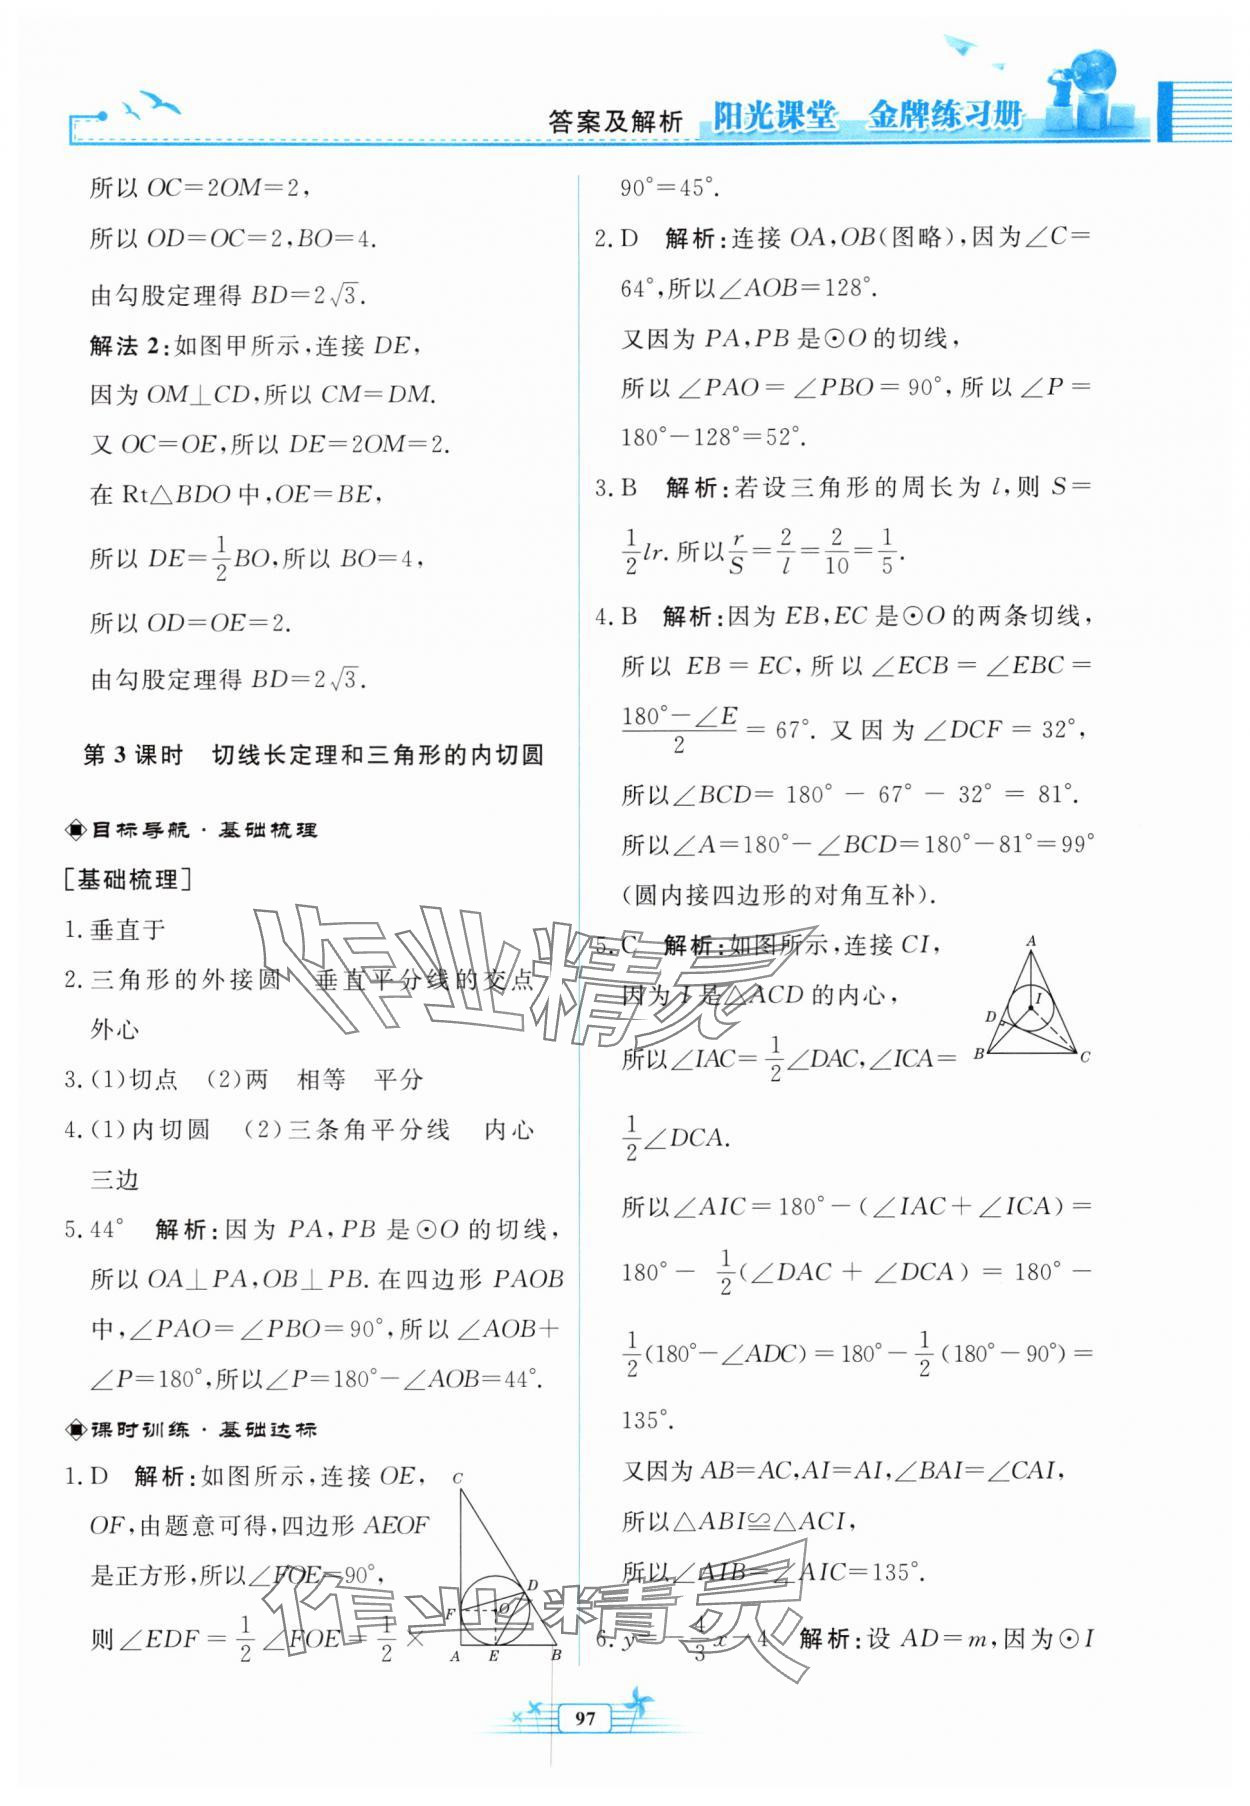 答案及解析 阳光课堂 金牌练习册
所以 OC=2OM=2,
所以 OD=OC=2,BO=4.
由勾股定理得 BD=2√3.
解法 2:如图甲所示,连接 DE,
因为 OM⊥CD,所以 CM=DM.
又 OC=OE,所以 DE=2OM=2.
在 Rt△BDO 中,OE=BE,
所以 DE=1/2BO,所以 BO=4,
所以 OD=OE=2.
由勾股定理得 BD=2√3.
第 3 课时 切线长定理和三角形的内切圆
目标导航·基础梳理
[基础梳理]
1. 垂直于
2. 三角形的外接圆 垂直平分线的交点
外心
3. (1)切点 (2)两 相等 平分
4. (1)内切圆 (2)三条角平分线 内心
三边
5. 44° 解析:因为 PA,PB 是⊙O 的切线,
所以 OA⊥PA,OB⊥PB. 在四边形 PAOB
中,∠PAO=∠PBO=90°,所以∠AOB+
∠P=180°,所以∠P=180°-∠AOB=44°.
课时训练·基础达标
1. D 解析:如图所示,连接 OE,
OF,由题意可得,四边形 AEOF
是正方形,所以∠FOE=90°,
则∠EDF=1/2∠FOE=1/2×
C
D
F
O
A E B
90°=45°.
2. D 解析:连接 OA,OB(图略),因为∠C=
64°,所以∠AOB=128°.
又因为 PA,PB 是⊙O 的切线,
所以∠PAO=∠PBO=90°,所以∠P=
180°-128°=52°.
3. B 解析:若设三角形的周长为 l,则 S=
1/2lr. 所以r/S=2/l=2/10=1/5.
4. B 解析:因为 EB,EC 是⊙O 的两条切线,
所以 EB=EC,所以∠ECB=∠EBC=
(180°-∠E)/2=67°. 又因为∠DCF=32°,
所以∠BCD=180°-67°-32°=81°.
所以∠A=180°-∠BCD=180°-81°=99°
(圆内接四边形的对角互补).
5. C 解析:如图所示,连接 CI,
因为 I 是△ACD 的内心,
所以∠IAC=1/2∠DAC,∠ICA=
A
I
D
B C
1/2∠DCA.
所以∠AIC=180°-(∠IAC+∠ICA)=
180°-1/2(∠DAC+∠DCA)=180°-
1/2(180°-∠ADC)=180°-1/2(180°-90°)=
135°.
又因为 AB=AC,AI=AI,∠BAI=∠CAI,
所以△ABI≌△ACI,
所以∠AIB=∠AIC=135°.
6. y=-4/3x-4 解析:设 AD=m,因为⊙I
97
作业精灵
作业精灵